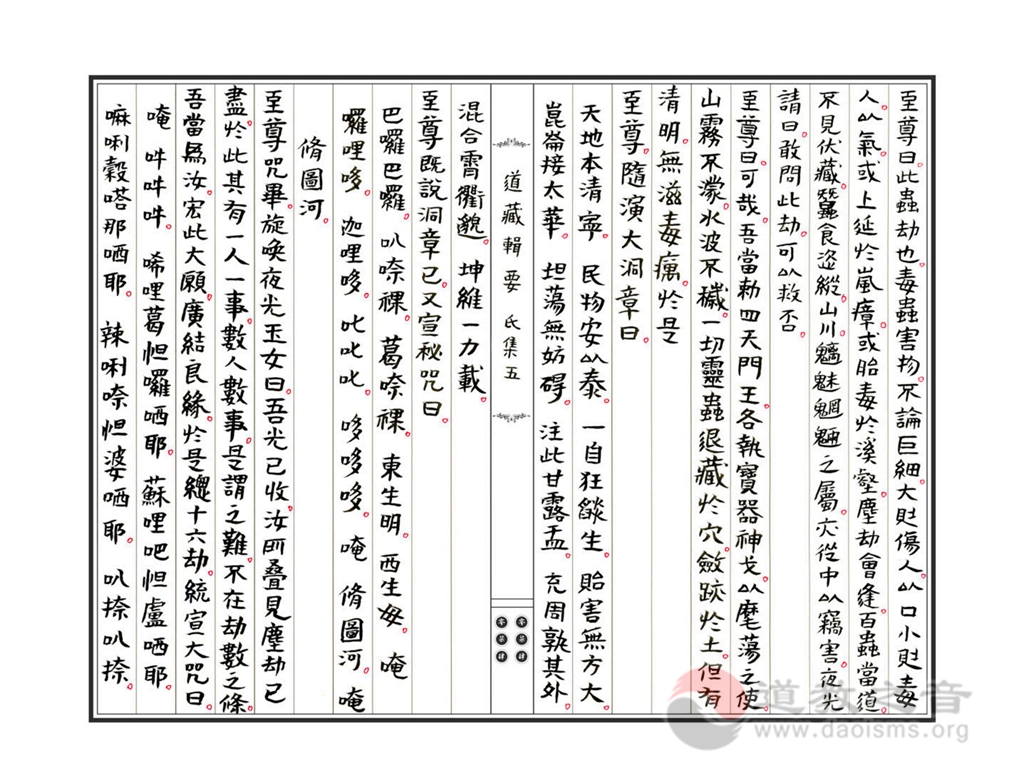 至尊曰。此蟲劫也。毒蟲害物。不論巨細。大則傷人。以口小則毒
人。以氣。或上延於嵐瘴。或胎毒於溪壑。塵劫會逢。百蟲當道。
不見伏藏。蠶食恣縱。山川魑魅魍魎之屬。亦從中以竊害。夜光
請曰。敢問此劫。可以救否。
至尊曰。可哉。吾當勅四天門王。各執寶器神戈。以麾蕩之。使
山霧不濛。水波不穢。一切靈蟲。退藏於穴。斂跡於土。但有
清明。無滋毒癘。於是
至尊。隨演大洞章曰。
天地本清寧。民物安以泰。一自狂燄生。貽害無方大。
崑崙接太華。坦蕩無妨碍。注此甘露盂。充周孰其外。
道藏輯要 氐集五
混合霄衢邈。坤維一力載。
至尊既說洞章已。又宣秘咒曰。
巴囉巴囉。叭唸祼。葛唸祼。東生明。西生每。唵
囉哩哆。迦哩哆。叱叱叱。哆哆哆。唵 脩圖河。唵
脩圖河。
至尊咒畢。旋喚夜光玉女曰。吾光已收。汝所疊見塵劫。已
盡於此。其有一人一事。數人數事。是謂之難。不在劫數之條。
吾當爲汝。宏此大願。廣結良緣。於是總十六劫。統宣大咒曰。
唵 吽吽吽。唏哩葛怛囉哂耶。蘇哩吧怛盧哂耶。
嘛唎穀嗒那哂耶。辣唎唸怛婆哂耶。叭捺叭捺。
道教之音
www.daoisms.org